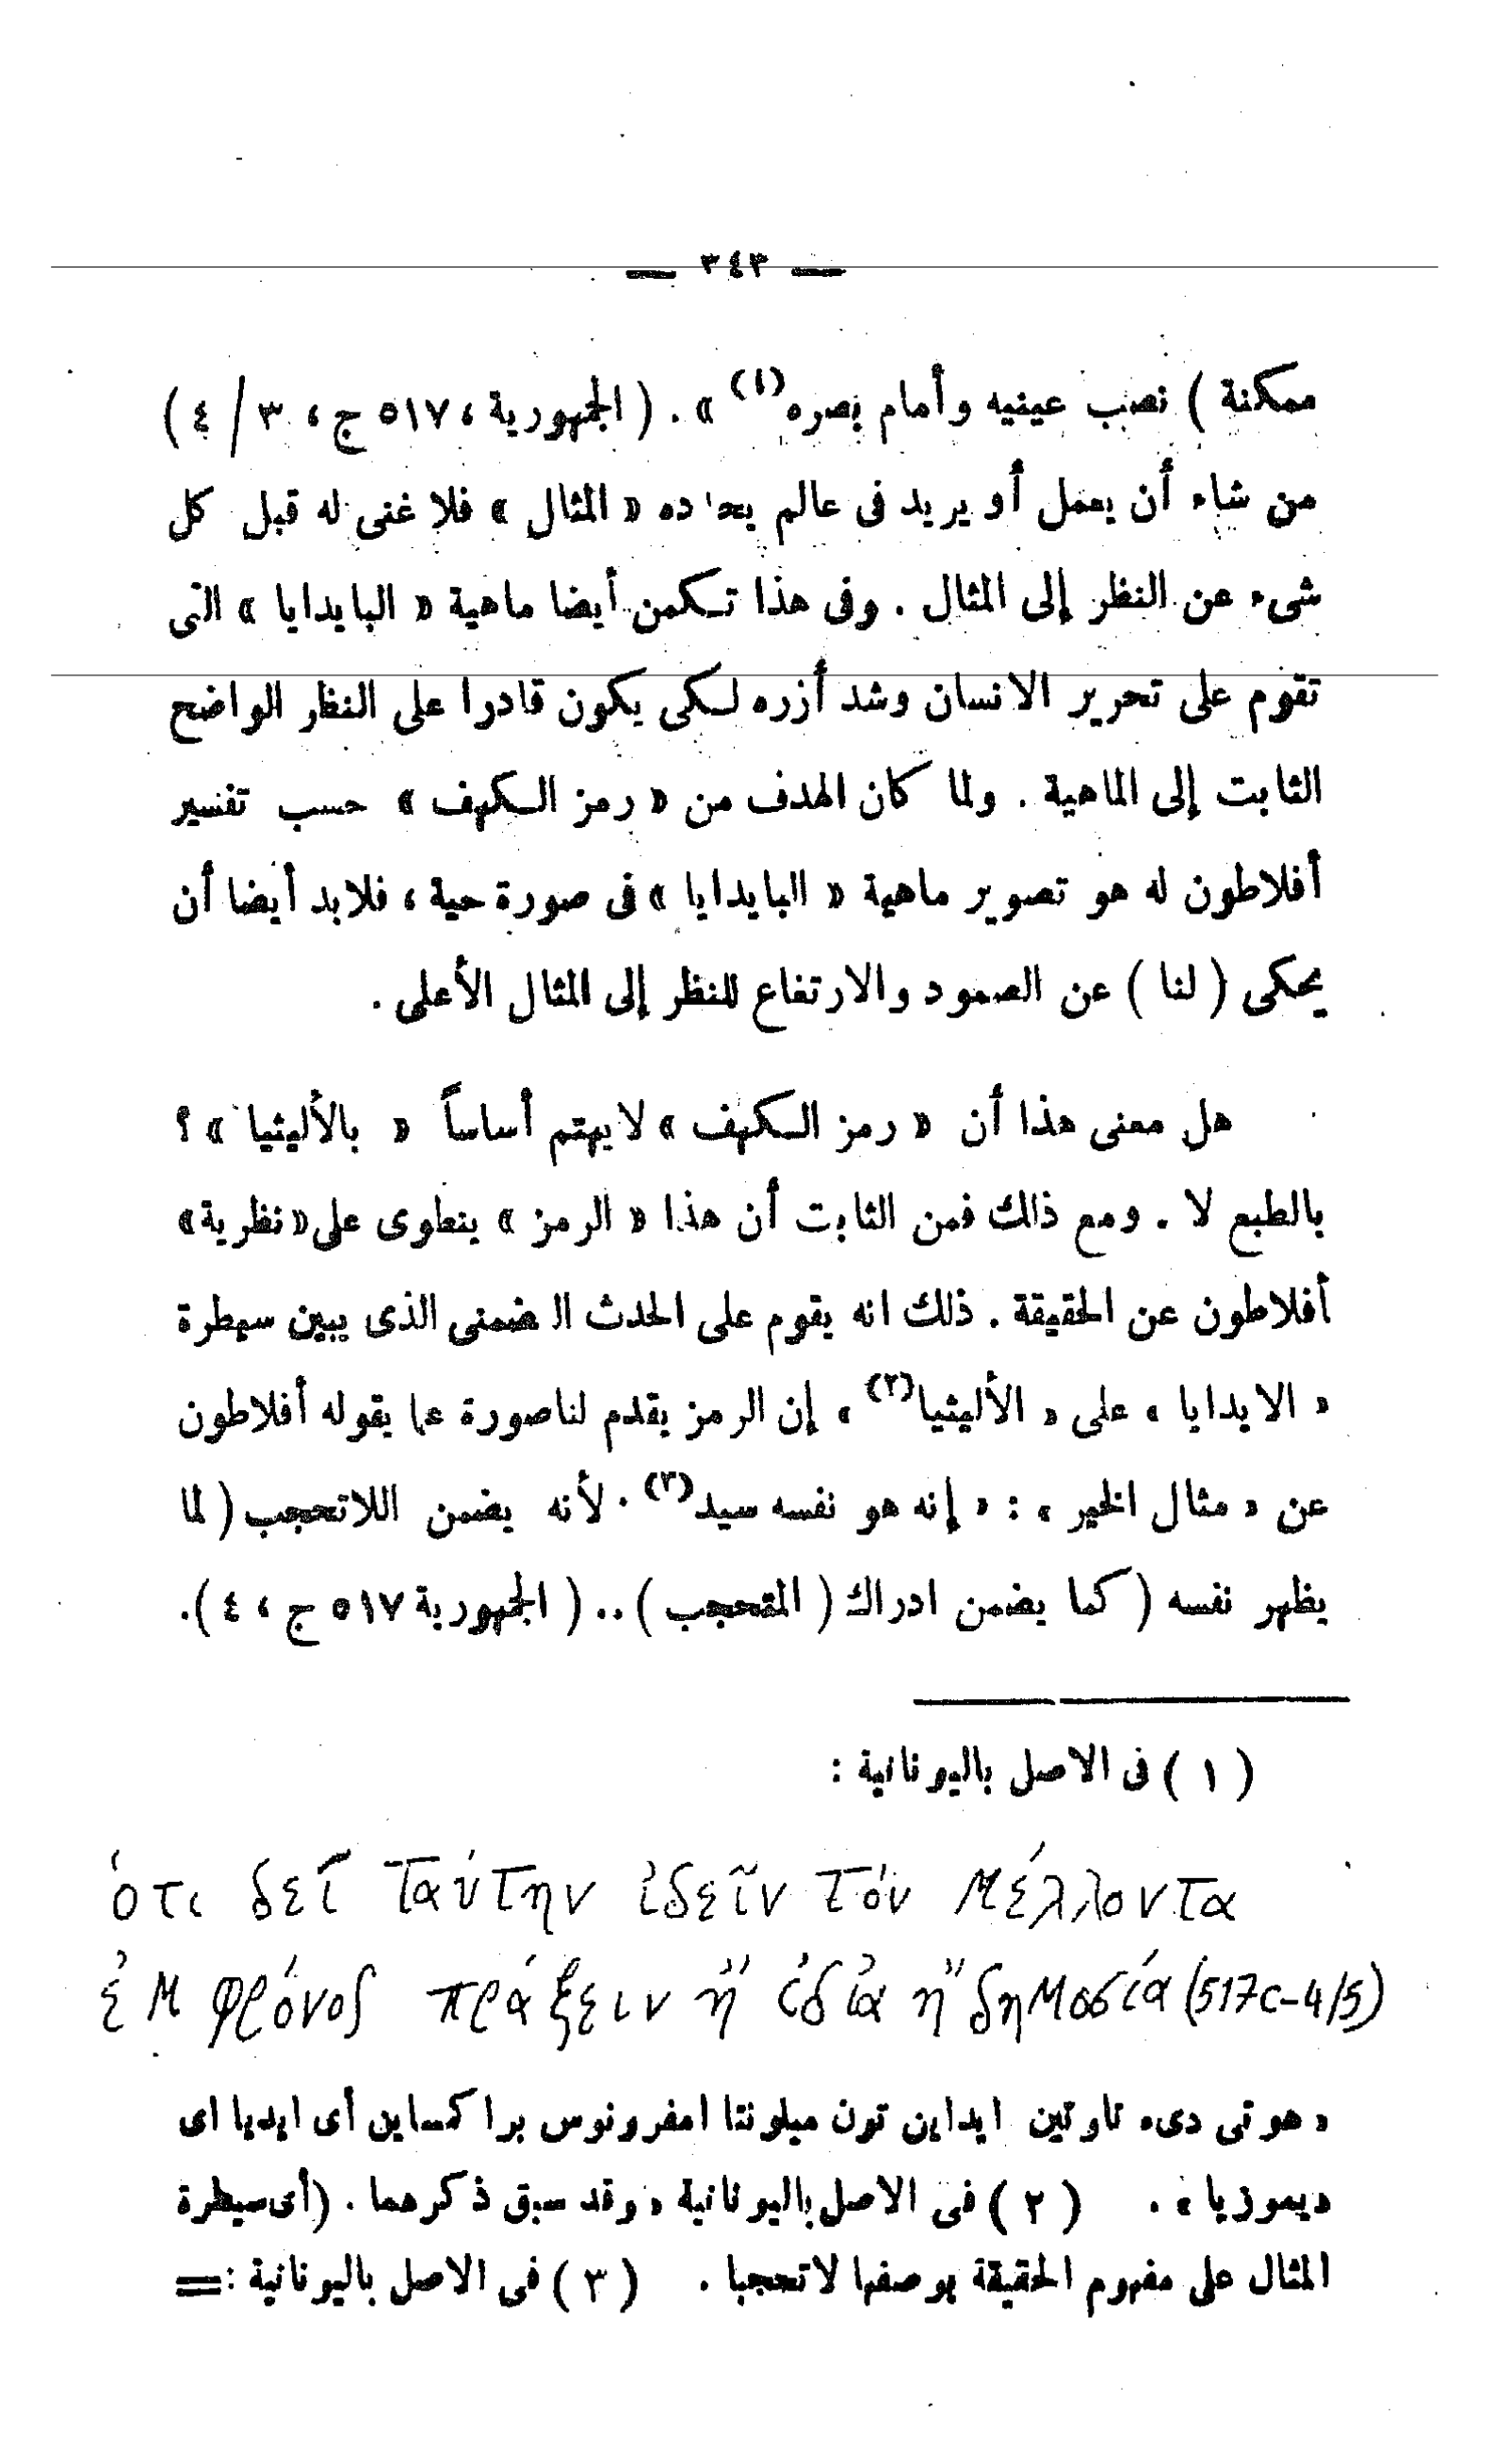 — ٣٤٣ —
ممكنة ) نصب عينيه وأمام بصره(١) » . ( الجمهورية ، ٥١٧ ج ، ٣ / ٤ )
من شاء أن يعمل أو يريد فى عالم يحدده « المثال » فلا غنى له قبل كل
شىء عن النظر إلى المثال . وفى هذا تكمن أيضا ماهية « البايدايا » التى
تقوم على تحرير الانسان وشد أزره لكى يكون قادرا على النظر الواضح
الثابت إلى الماهية . ولما كان الهدف من « رمز الكهف » حسب تفسير
أفلاطون له هو تصوير ماهية « البايدايا » فى صورة حية ، فلابد أيضا أن
يحكى ( لنا ) عن الصعود والارتفاع للنظر إلى المثال الأعلى .
هل معنى هذا أن « رمز الكهف » لا يهتم أساساً « بالأليثيا » ؟
بالطبع لا . ومع ذلك فمن الثابت أن هذا « الرمز » ينطوى على « نظرية »
أفلاطون عن الحقيقة . ذلك انه يقوم على الحدث الضمنى الذى يبين سيطرة
« الايدايا » على « الأليثيا(٢) » إن الرمز يقدم لنا صورة عما يقوله أفلاطون
عن « مثال الخير » : « إنه هو نفسه سيد(٣) . لأنه يضمن اللاتحجب ( لما
يظهر نفسه ( كما يضمن ادراك ( المتحجب ) .. ( الجمهورية ٥١٧ ج ، ٤ ) .
( ١ ) فى الاصل باليونانية :
ὁτι δεῖ ταύτην ἰδεῖν τὸν μέλλοντα
ἐμφρόνος πράξειν ἢ ἰδίᾳ ἢ δημοσίᾳ (517c-4/5)
« هوتى دىء تاوتين ايداين تون ميلونتا امفرونوس براكساين أى ايديا اى
ديموزيا » . ( ٢ ) فى الاصل باليونانية « وقد سبق ذكرهما . ( أى سيطرة
المثال على مفهوم الحقيقة بوصفها لاتحجبا . ( ٣ ) فى الاصل باليونانية : =